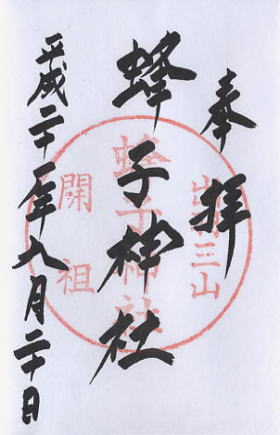 奉拝
出羽三山
蜂子神社
蜂子神社
開祖
平成二十二年八月二十日